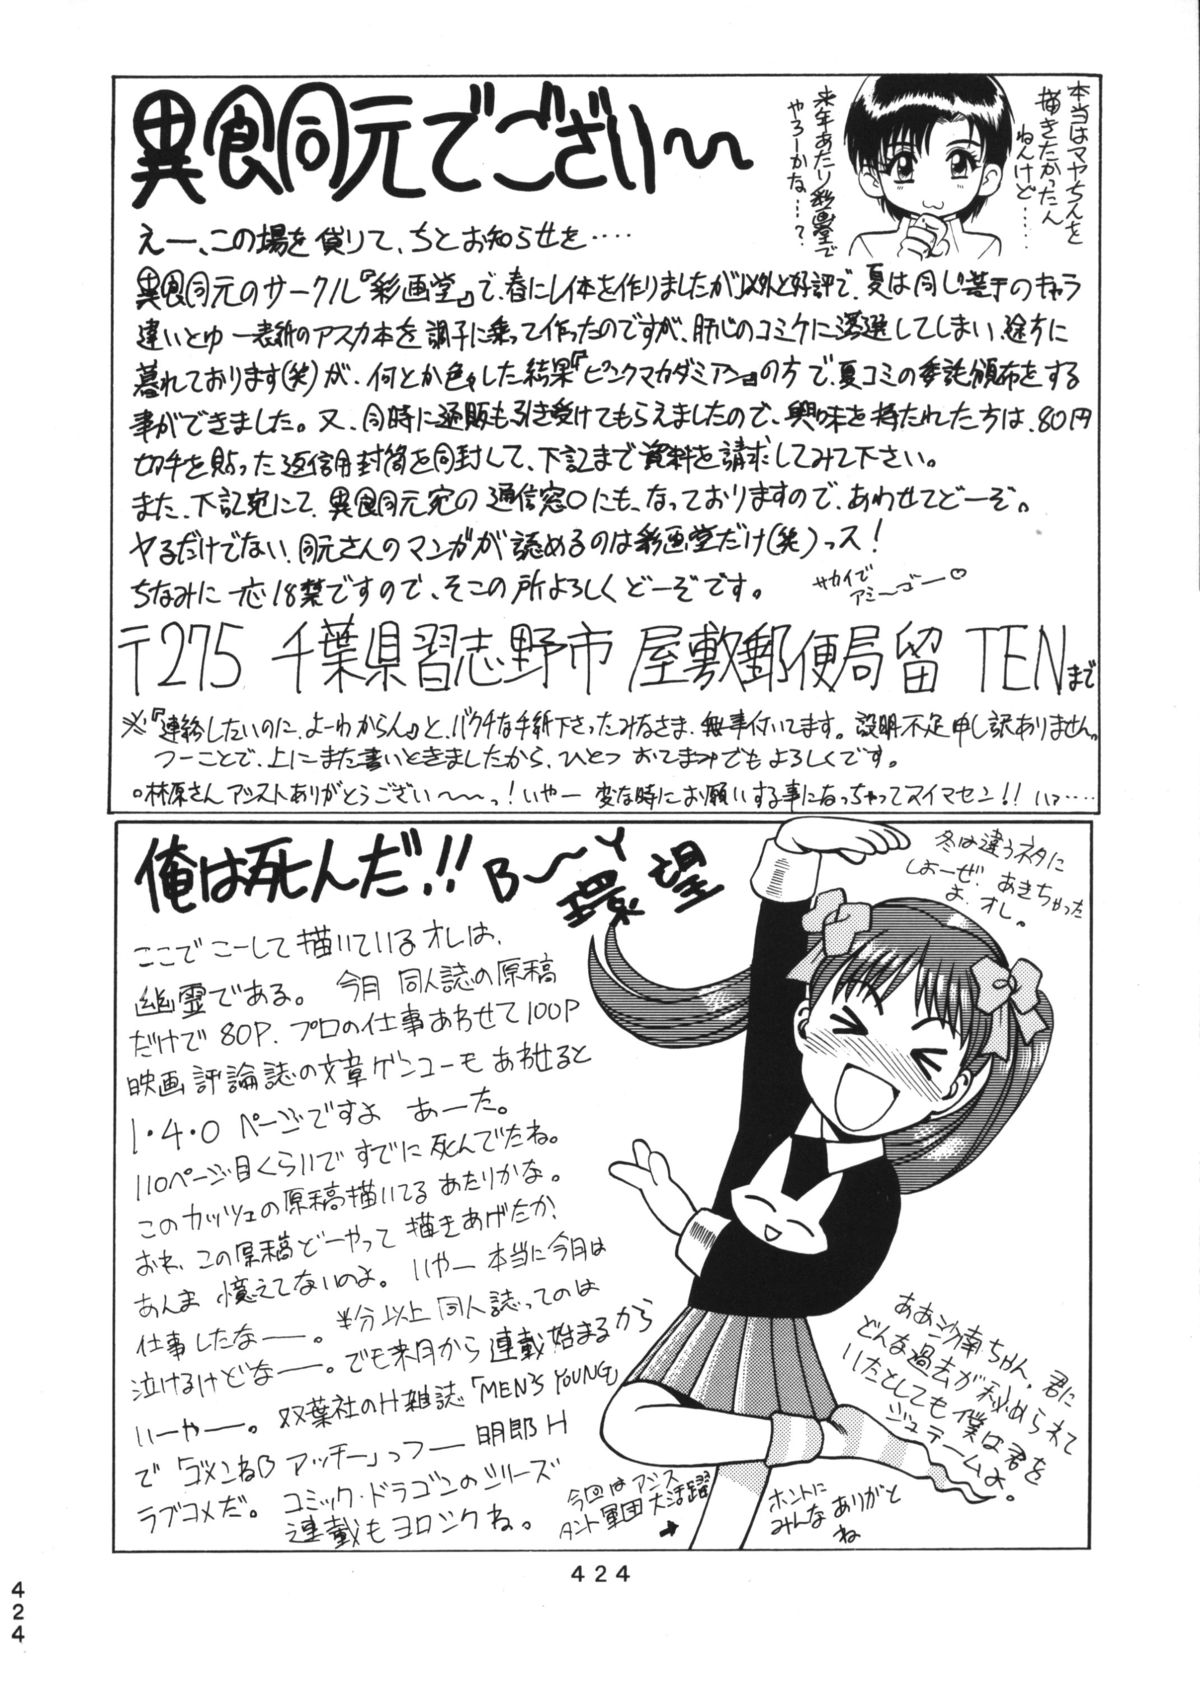 異食同元でござい〜
本当はマヤちゃんを
描きたかったん
ねんけど……
来年あたり彩画堂で
やろーかな…?
えー、この場を貸りて、ちとお知らせを‥‥
異食同元のサークル『彩画堂』で、春にレイ本を作りましたが以外と好評で、夏は同じ若干のキャラ
違いとゆー表紙のアスカ本を調子に乗って作ったのですが、肝心のコミケに落選してしまい、途方に
暮れております(笑)が、何とか色々した結果『ピンクマカダミアン』の方で、夏コミの委託頒布をする
事ができました。又、同時に通販も引き受けてもらえましたので、興味を持たれた方は、80円
切手を貼った返信用封筒を同封して、下記まで資料を請求してみて下さい。
また、下記宛にて、異食同元宛の通信窓口にも、なっておりますので、あわせてどーぞ。
ヤるだけでない、同元さんのマンガが認めるのは彩画堂だけ(笑)っス!
ちなみに一応18禁ですので、そこの所よろしくどーぞです。
サカイで
アミ〜ゴー♡
〒275 千葉県習志野市 屋敷郵便局留 TENまで
※『連絡したいのに、よーわからん』と、バクチな手紙下さったみなさま、無事付いてます。説明不足申し訳ありません。
つーことで、上にまた書いときましたから、ひとつ おてまみでもよろしくです。
○林原さんアシストありがとうござい〜〜っ!いやー 変な時にお願いする事になっちゃってスイマセン!!
俺は死んだ!! B〜Y
環望
冬は違うネタに
しよーぜ、あきちゃった
よ、オレ。
ここでこーして描いているオレは、
幽霊である。 今月 同人誌の原稿
だけで 80P. プロの仕事あわせて100P
映画評論誌の文章ゲンコーも あわせると
1・4・0 ページですよ あーた。
110ページ目くらいで すでに 死んでたね。
このカッツェの原稿描いてる あたりかな。
おれ、この原稿どーやって 描きあげたか、
あんま 憶えてないのよ。 いやー 本当に今月は
仕事したなーー。半分以上 同人誌ってのは
泣けるけどなーー。でも来月から 連載始まるから
いーやーー。 双葉社のH雑誌「MEN'S YOUNG」
で「ゴメンねB アッチー」っつー 明郎H
ラブコメだ。 コミック・ドラゴンのシリーズ
連載もヨロシクね。
ああ沙南ちゃん、君に
どんな過去が秘められて
いたとしても僕は君を
ジュテームよ。
今回はアシス
タント軍団大活躍
→
ホントに
みんなありがと
ね
424
424